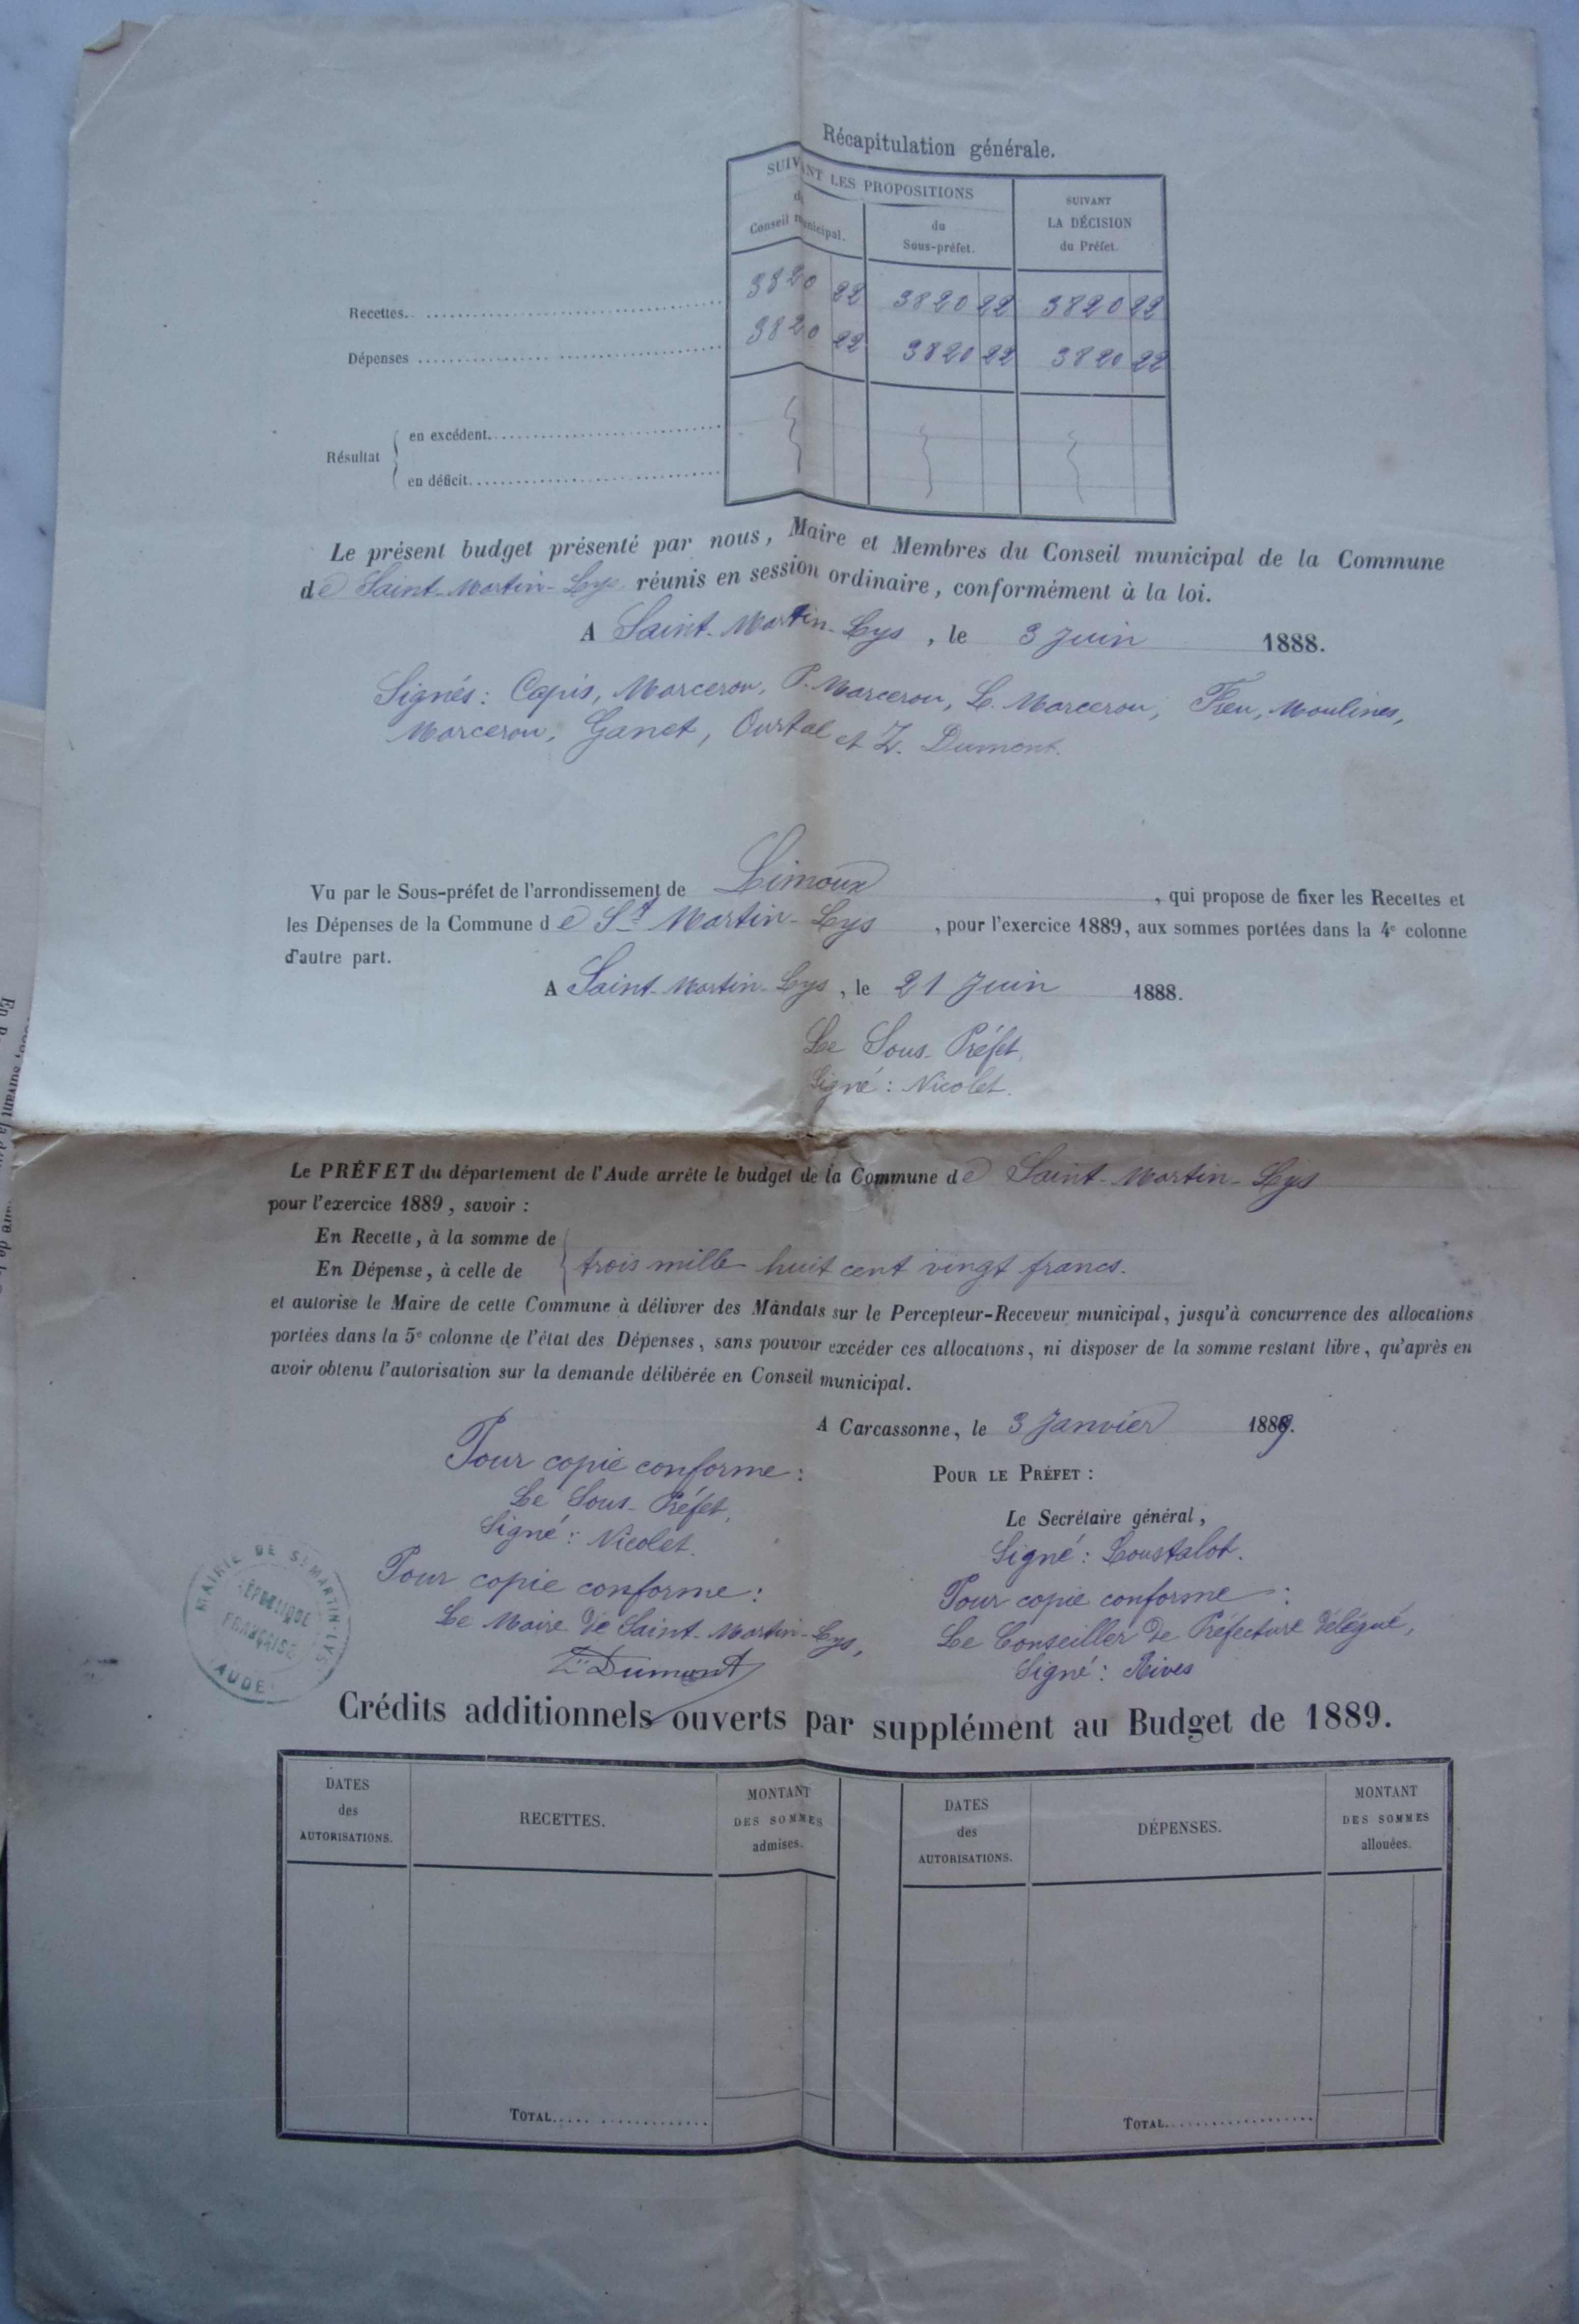 Récapitulation générale.
SUIVANT LES PROPOSITIONS
SUIVANT
LA DÉCISION
du Préfet.
du
Conseil municipal.
du
Sous-préfet.
Recettes. 3820 22 3820 22 3820 22
Dépenses 3820 22 3820 22 3820 22
Résultat
en excédent.
en déficit.
Le présent budget présenté par nous, Maire et Membres du Conseil municipal de la Commune
de Saint-Martin-Lys réunis en session ordinaire, conformément à la loi.
A Saint-Martin-Lys, le 3 Juin 1888.
Signés: Capis, Marcerou, P. Marcerou, L. Marcerou, Feu, Moulines,
Marcerou, Ganet, Ourtal et Z. Dumont.
Vu par le Sous-préfet de l'arrondissement de Limoux, qui propose de fixer les Recettes et
les Dépenses de la Commune de St Martin-Lys, pour l'exercice 1889, aux sommes portées dans la 4e colonne
d'autre part.
A Saint-Martin-Lys, le 21 Juin 1888.
Le Sous-Préfet,
Signé: Nicolet.
Le PRÉFET du département de l'Aude arrête le budget de la Commune de Saint-Martin-Lys
pour l'exercice 1889, savoir :
En Recette, à la somme de
En Dépense, à celle de
trois mille huit cent vingt francs.
et autorise le Maire de cette Commune à délivrer des Mandats sur le Percepteur-Receveur municipal, jusqu'à concurrence des allocations
portées dans la 5e colonne de l'état des Dépenses, sans pouvoir excéder ces allocations, ni disposer de la somme restant libre, qu'après en
avoir obtenu l'autorisation sur la demande délibérée en Conseil municipal.
A Carcassonne, le 3 Janvier 1889.
Pour copie conforme:
Le Sous-Préfet,
Signé: Nicolet.
POUR LE PRÉFET :
Le Secrétaire général,
Signé: Loustalot.
Pour copie conforme:
Le Maire de Saint-Martin-Lys,
Zn Dumont
Pour copie conforme:
Le Conseiller de Préfecture délégué,
Signé: Rives
MAIRIE DE ST MARTIN-LYS
RÉPUBLIQUE
FRANÇAISE
AUDE
Crédits additionnels ouverts par supplément au Budget de 1889.
DATES
des
AUTORISATIONS.
RECETTES.
MONTANT
DES SOMMES
admises.
DATES
des
AUTORISATIONS.
DÉPENSES.
MONTANT
DES SOMMES
allouées.
TOTAL
TOTAL